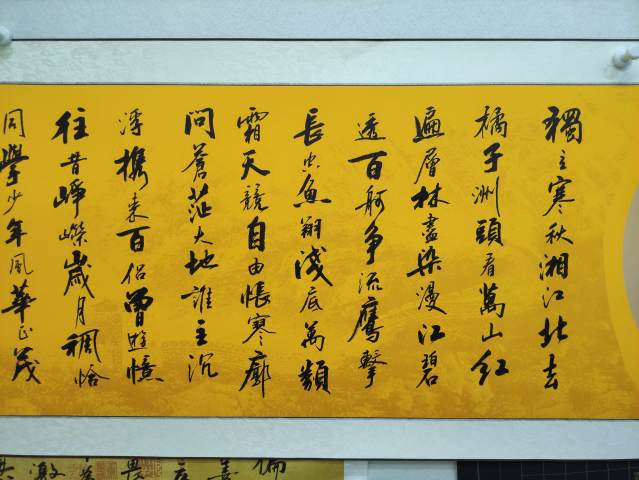 獨立寒秋湘江北去
橘子洲頭看萬山红
遍層林盡染漫江碧
透百舸争流鷹擊
長空魚翔淺底萬類
霜天競自由悵寥廓
問蒼茫大地誰主沉
浮携来百侣曾遊憶
往昔崢嶸歲月稠恰
同學少年風華正茂